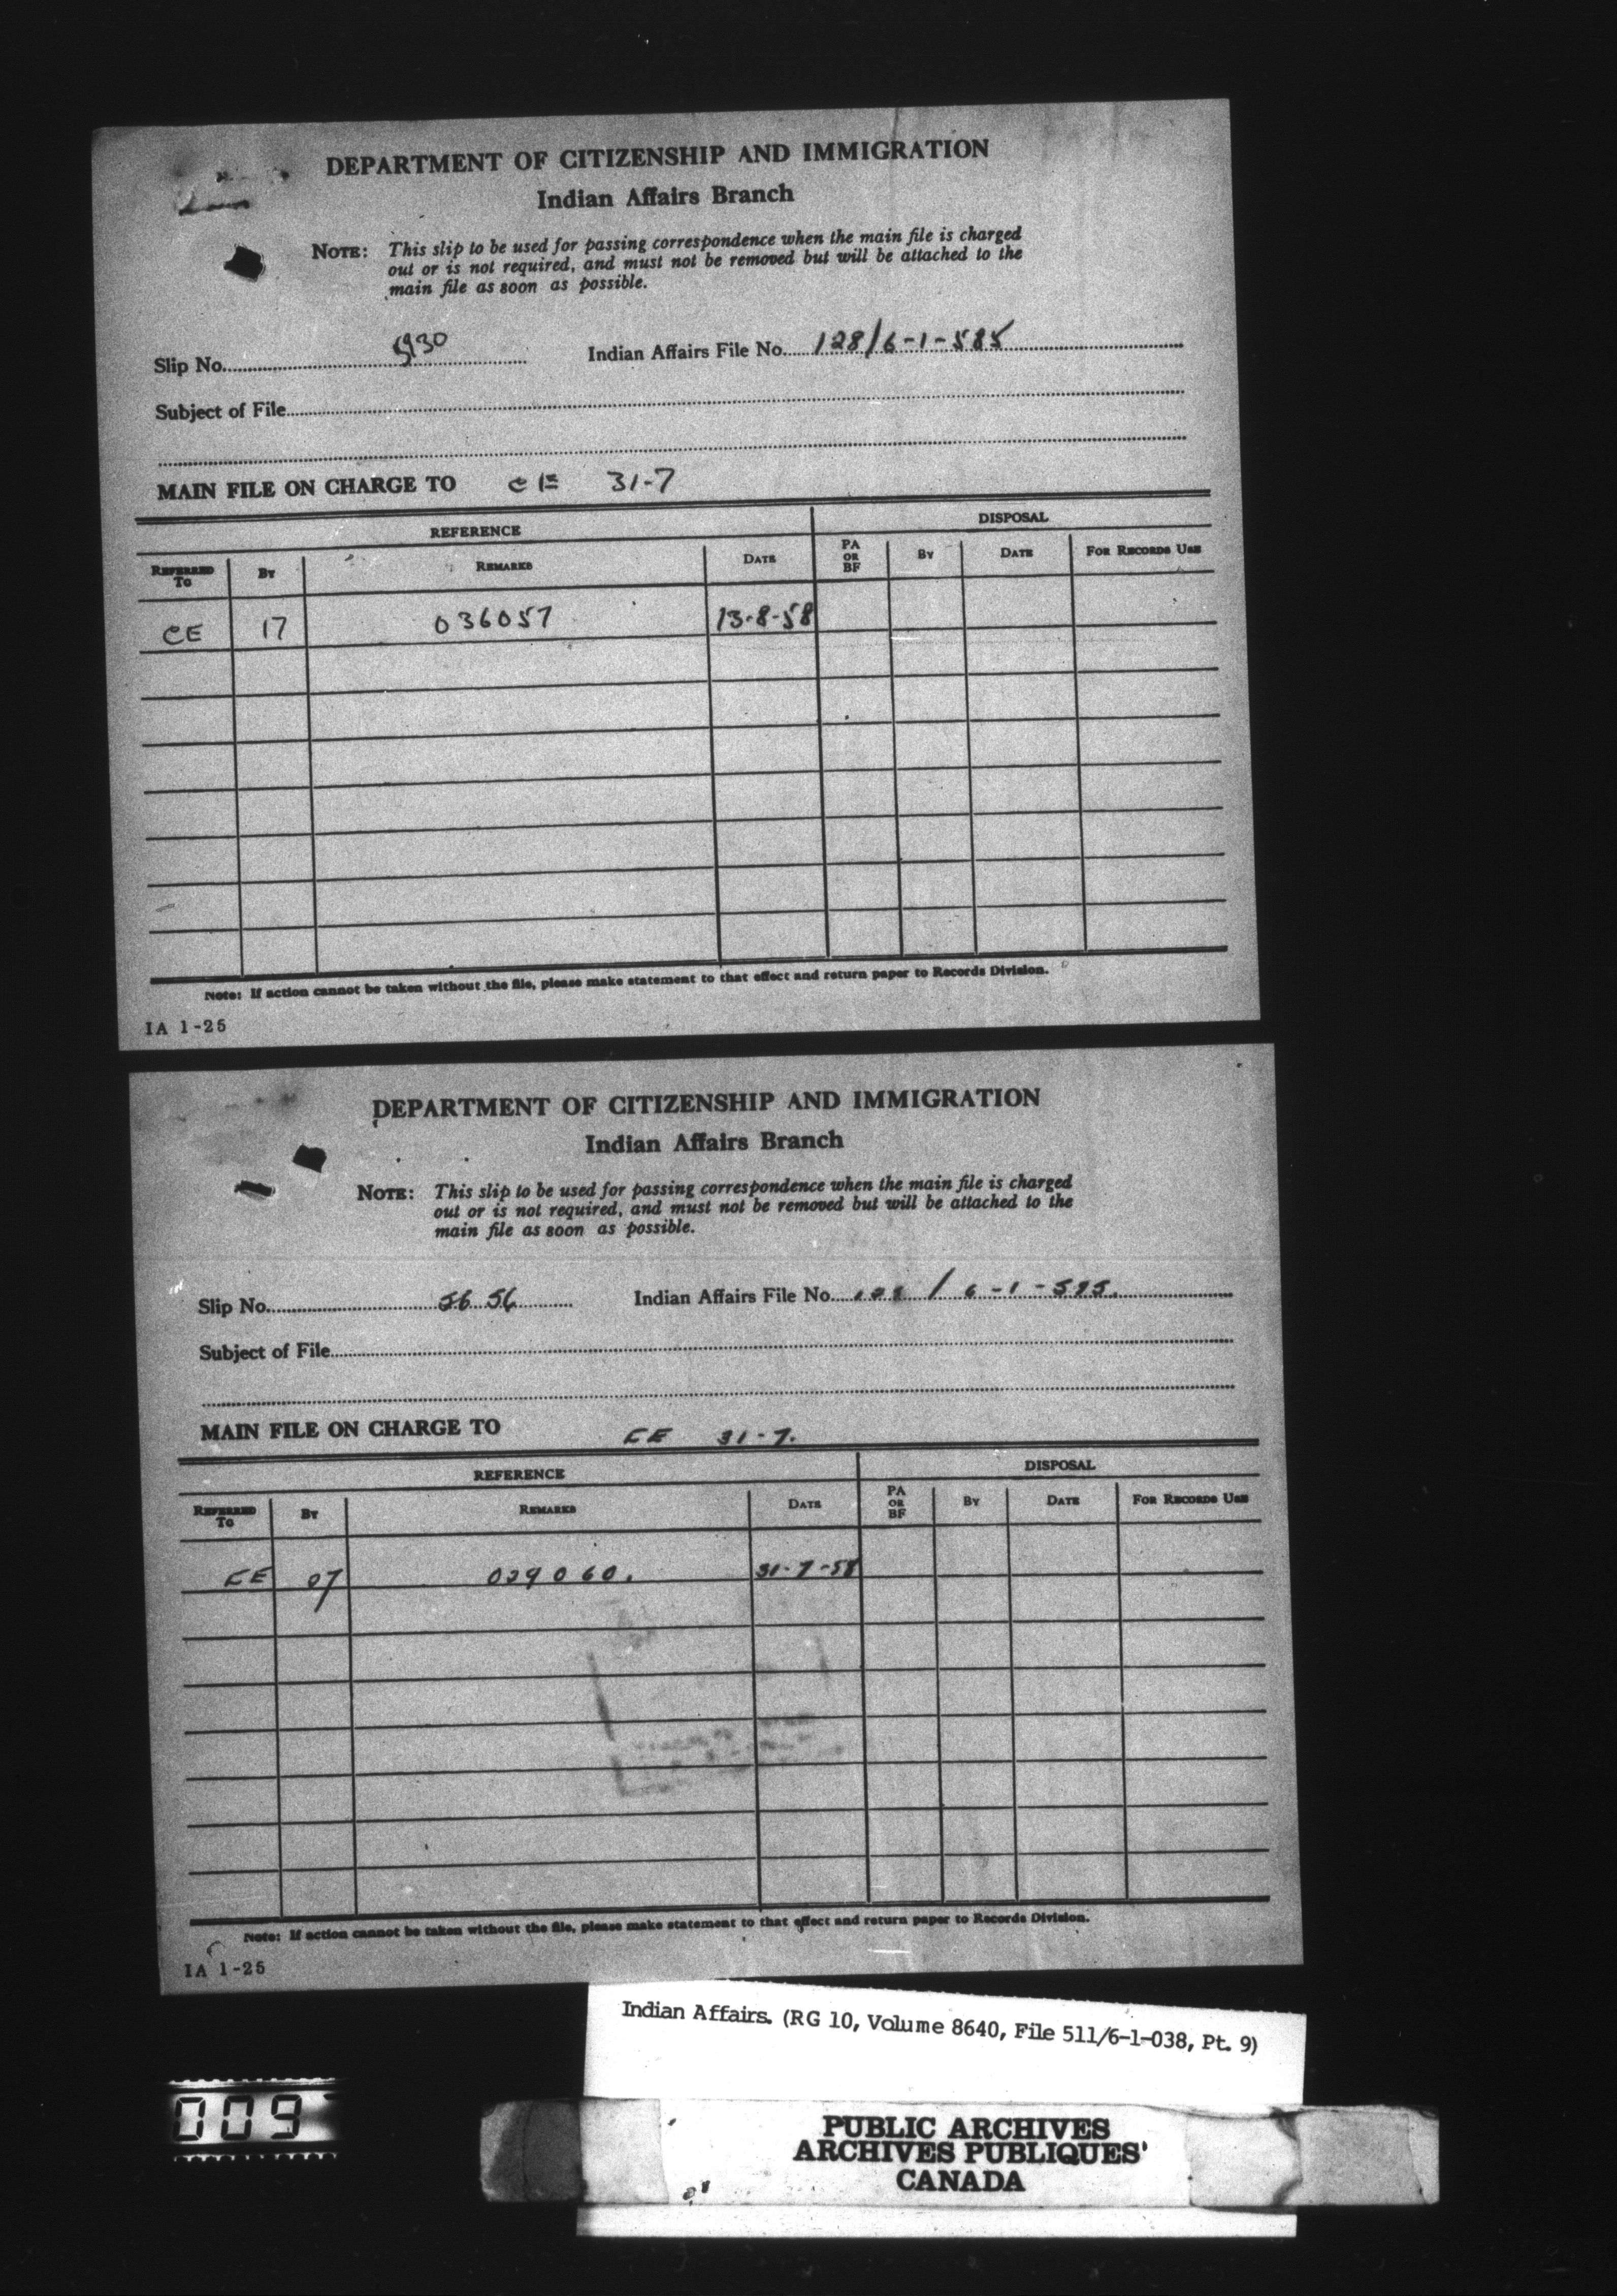 DEPARTMENT OF CITIZENSHIP AND IMMIGRATION
Indian Affairs Branch
NOTE: This slip to be used for passing correspondence when the main file is charged
out or is not required, and must not be removed but will be attached to the
main file as soon as possible.
Slip No. 5930 Indian Affairs File No. 128/6-1-585
Subject of File
MAIN FILE ON CHARGE TO CE 31-7
REFERENCE DISPOSAL
REFERRED TO BY REMARKS DATE PA OR BF BY DATE FOR RECORDS USE
CE 17 036057 13-8-58
Note: If action cannot be taken without the file, please make statement to that effect and return paper to Records Division.
IA 1-25
DEPARTMENT OF CITIZENSHIP AND IMMIGRATION
Indian Affairs Branch
NOTE: This slip to be used for passing correspondence when the main file is charged
out or is not required, and must not be removed but will be attached to the
main file as soon as possible.
Slip No. 5656 Indian Affairs File No. / 6-1-585.
Subject of File
MAIN FILE ON CHARGE TO CE 31-7.
REFERENCE DISPOSAL
REFERRED TO BY REMARKS DATE PA OR BF BY DATE FOR RECORDS USE
CE 07 039060. 31-7-58
Note: If action cannot be taken without the file, please make statement to that effect and return paper to Records Division.
IA 1-25
Indian Affairs. (RG 10, Volume 8640, File 511/6-1-038, Pt. 9)
009
PUBLIC ARCHIVES
ARCHIVES PUBLIQUES
CANADA